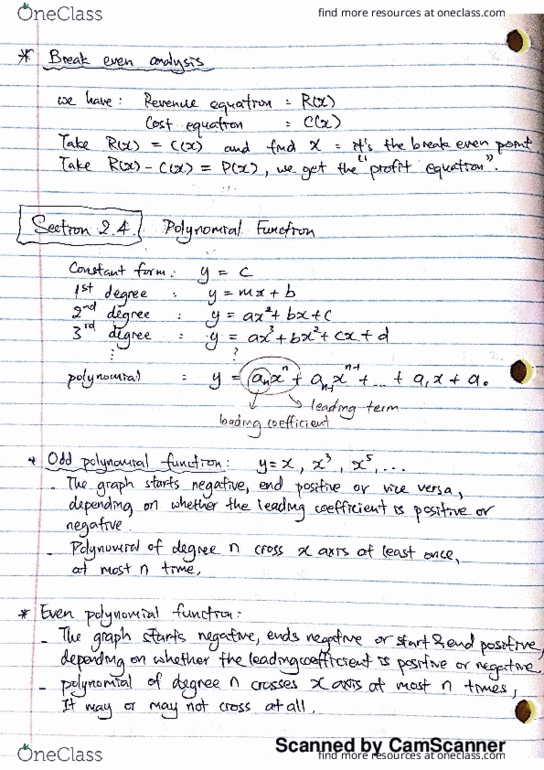 OneClass
find more resources at oneclass.com
* Break even analysis
we have : Revenue equation = R(x)
Cost equation = C(x)
Take R(x) = C(x) and find x = it's the break even point
Take R(x) - C(x) = P(x), we get the "profit equation".
Section 2.4. Polynomial Function
Constant form : y = c
1st degree : y = mx + b
2nd degree : y = ax² + bx + c
3rd degree : y = ax³ + bx² + cx + d
polynomial : y = aₙxⁿ + aₙ₋₁xⁿ⁻¹ + ... + a₁x + a₀
leading term
leading coefficient
* Odd polynomial function : y = x , x³ , x⁵ , ...
- The graph starts negative, end positive or vice versa,
depending on whether the leading coefficient is positive or
negative.
- Polynomial of degree n cross x axis at least once,
at most n time,
* Even polynomial function :
- The graph starts negative, ends negative or start & end positive,
depending on whether the leading coefficient is positive or negative
- polynomial of degree n crosses x axis at most n times,
It may or may not cross at all.
Scanned by CamScanner
OneClass
find more resources at oneclass.com